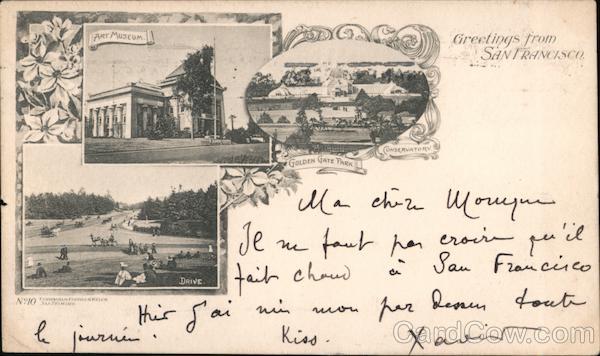 ART MUSEUM.
Greetings from
SAN FRANCISCO.
CONSERVATORY.
GOLDEN GATE PARK
DRIVE
No 10
SAN FRANCISCO
Ma chère Monique
Il ne faut pas croire qu'il
fait chaud à San Francisco
Hier j'ai mis mon par dessus toute
le journée. Kiss. Xavier
CardCow.com